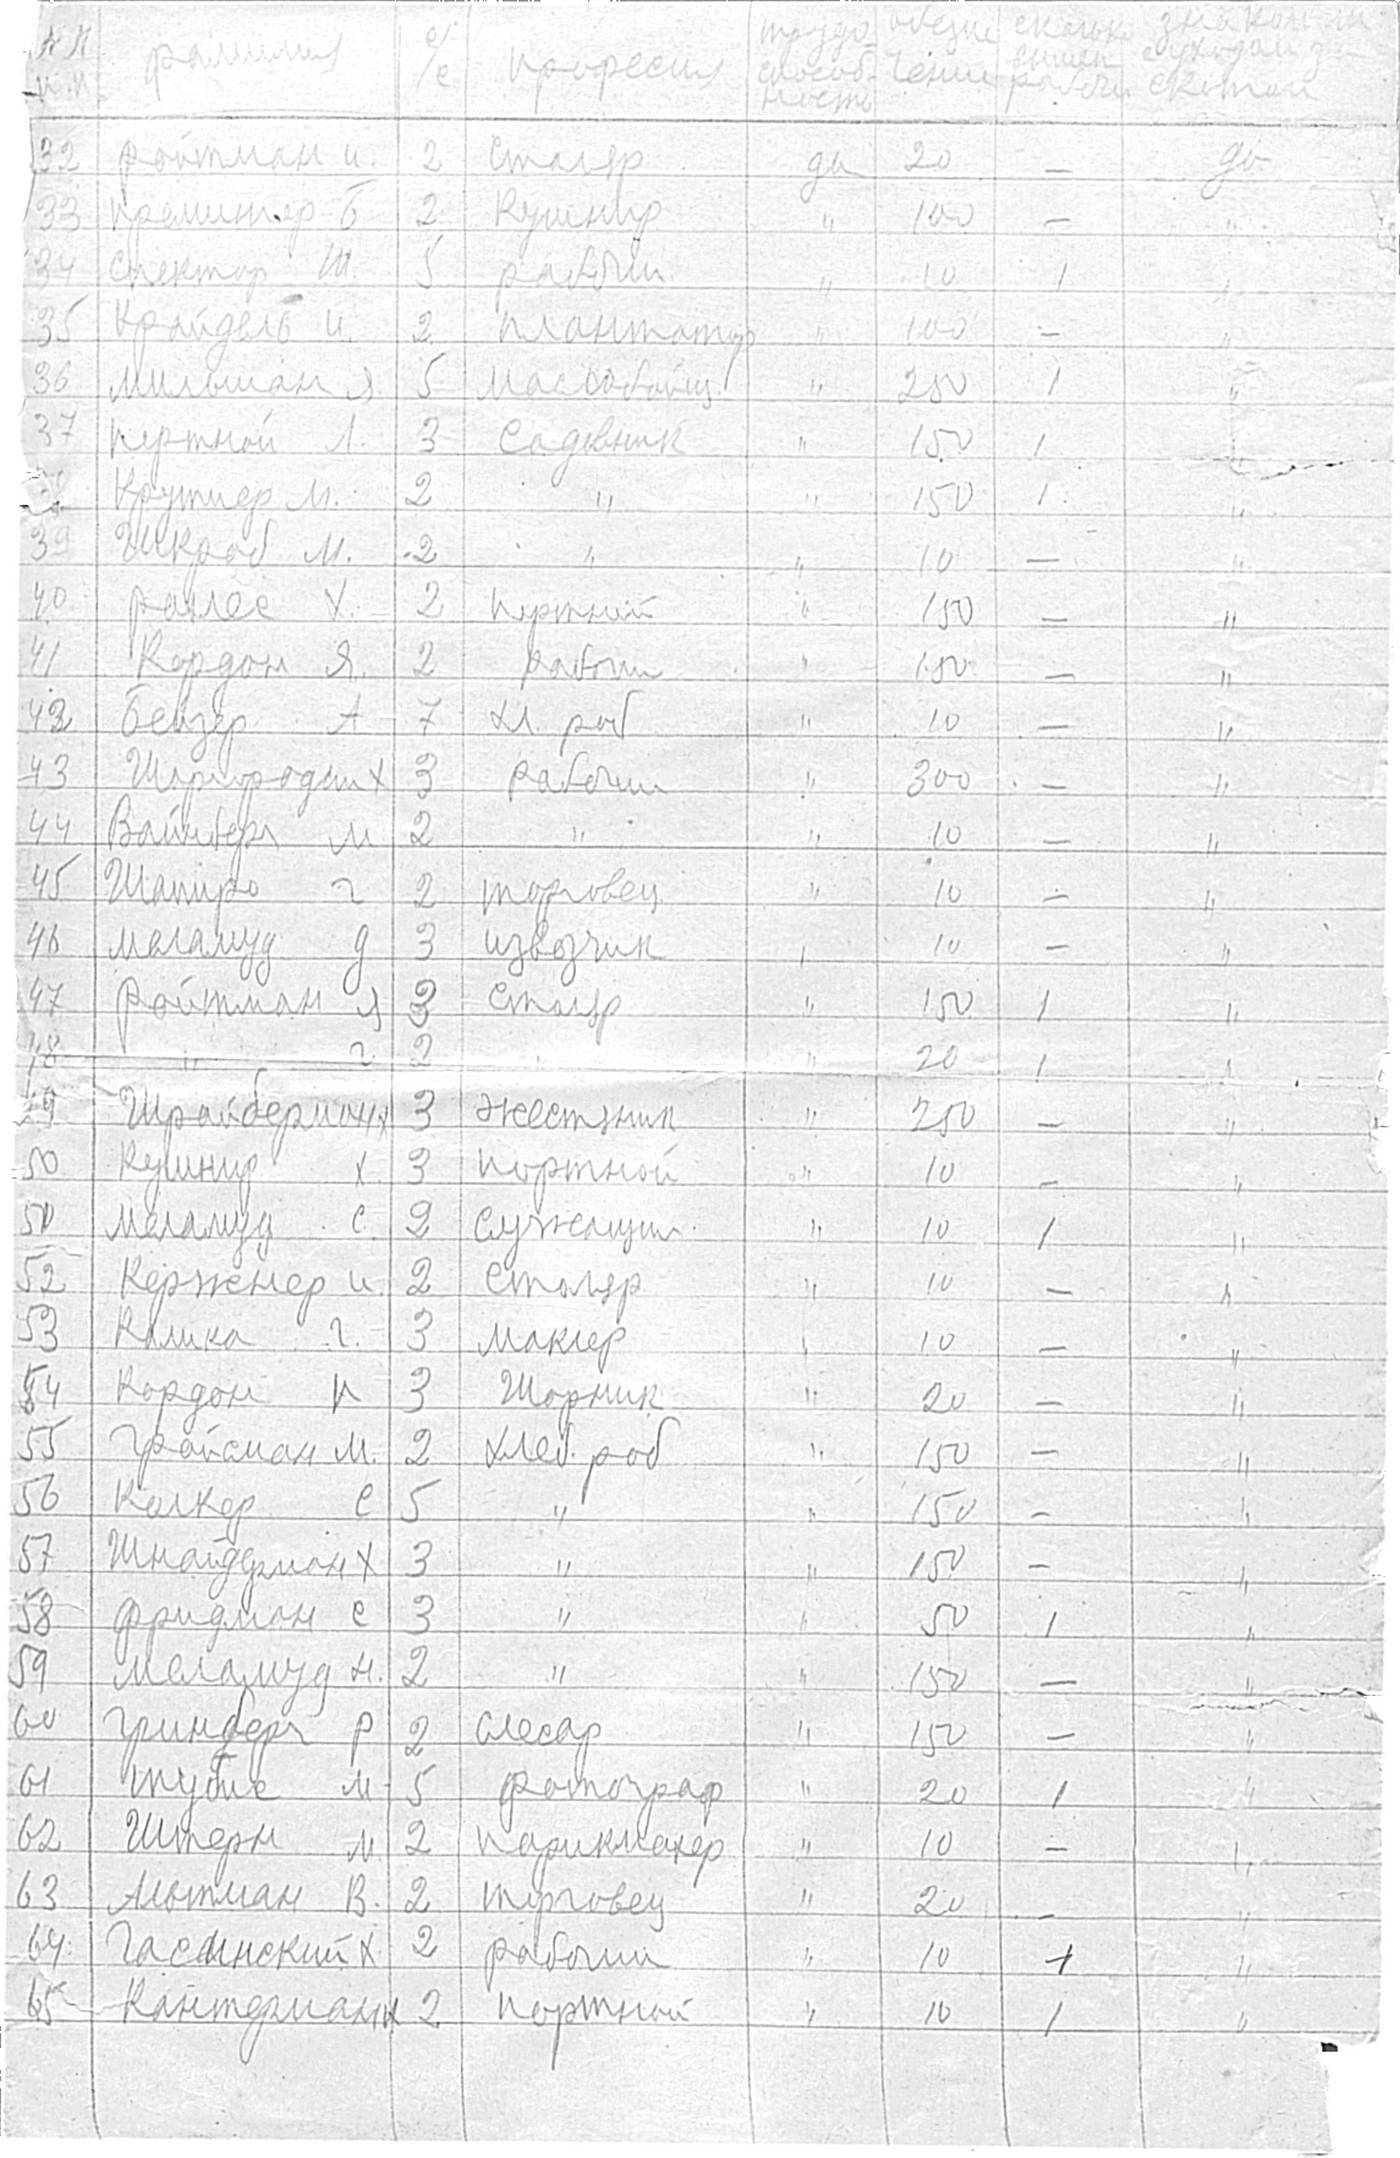 №№ п.п фамилия с/с професия трудоспособность обезпечении сколько знаком ли с уходом за скотом
32 Ройтман и. 2 Столяр да 20 — да
33 Б 2 Кушнир " 100 — "
34 Спектор Ш. 5 рабочи " 10 1 "
35 Крайдель и. 2 плантатор " 100 — "
36 Мильман я. 5 Маслобойщ. " 250 1 "
37 портной Л. 3 Садовник " 150 1 "
Крутиер М. 2 " " 150 1 "
39 Шкроб М. 2 " " 10 — "
40 Х. 2 портной " 150 — "
41 Кордон Я. 2 Рабочи " 150 — "
42 Бейзер А 7 хл. роб " 10 — "
43 Шаргородски Х 3 Рабочи " 300 — "
44 Вайнберг М 2 " " 10 — "
45 Шапиро г 2 торговец " 10 — "
46 меламуд д 3 извозчик " 10 — "
47 Ройтман я 3 Столяр " 150 1 "
48 " г 2 " " 20 1 "
49 Шрайберман х 3 жестяник " 250 — "
50 Кушнир х. 3 портной " 10 — "
51 меламуд с. 2 Служащии " 10 1 "
52 Кержнер и. 2 Столяр " 10 — "
53 Калика г. 3 маклер " 10 — "
54 Кордон п 3 Шорник " 20 — "
55 Гройсман М. 2 хлеб. роб " 150 — "
56 Колкер С 5 " " 150 — "
57 Шнайдерман Х 3 " " 150 — "
58 фридман с 3 " " 50 1 "
59 меламуд н. 2 " " 150 — "
60 гринберг р 2 слесар " 150 — "
61 М 5 фотограф " 20 1 "
62 Штерн м 2 парикмахер " 10 — "
63 Альтман В. 2 торговец " 20 — "
64 Гасинский Х 2 рабочии " 10 1 "
65 Кантерман 2 портной " 10 1 "